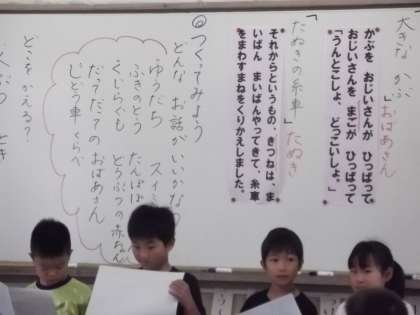 「大きな かぶ」おばあさん
かぶを おじいさんが ひっぱって
おじいさんを まごが ひっぱって
「うんとこしょ、どっこいしょ。」
「たぬきの糸車」たぬき
それからというもの、きつねは、ま
いばん まいばんやってきて、糸車
をまわすまねをくりかえしました。
◎つくってみよう
どんな お話が いいかな
ゆうだち スイミー
ふきのとう たんぽぽ
くじらぐも どうぶつの赤ちゃん
だってだっての おばあさん
じどう車くらべ
どこをかえる?